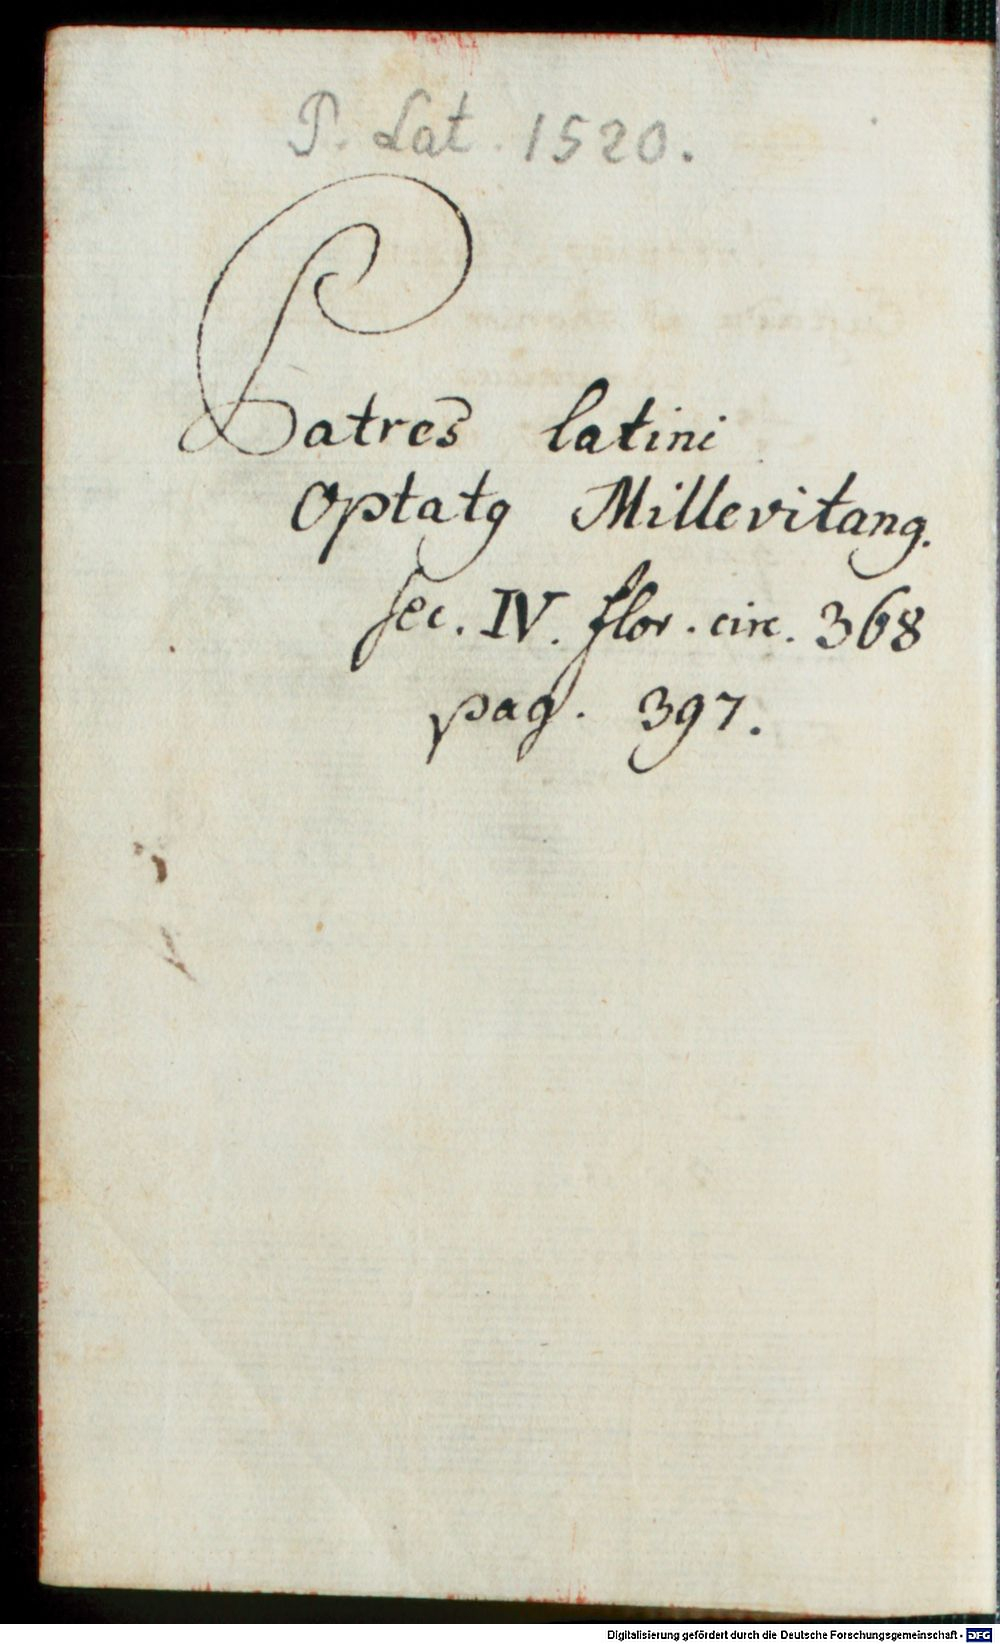 P. Lat. 1520.
Patres latini
Optatꝯ Millevitanꝯ.
sec. IV. flor. circ. 368
pag. 397.
Digitalisierung gefördert durch die Deutsche Forschungsgemeinschaft - DFG